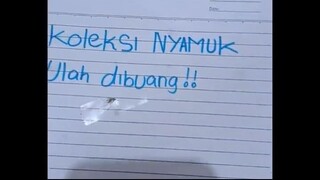 Koleksi NYAMUK
Ulah dibuang!!